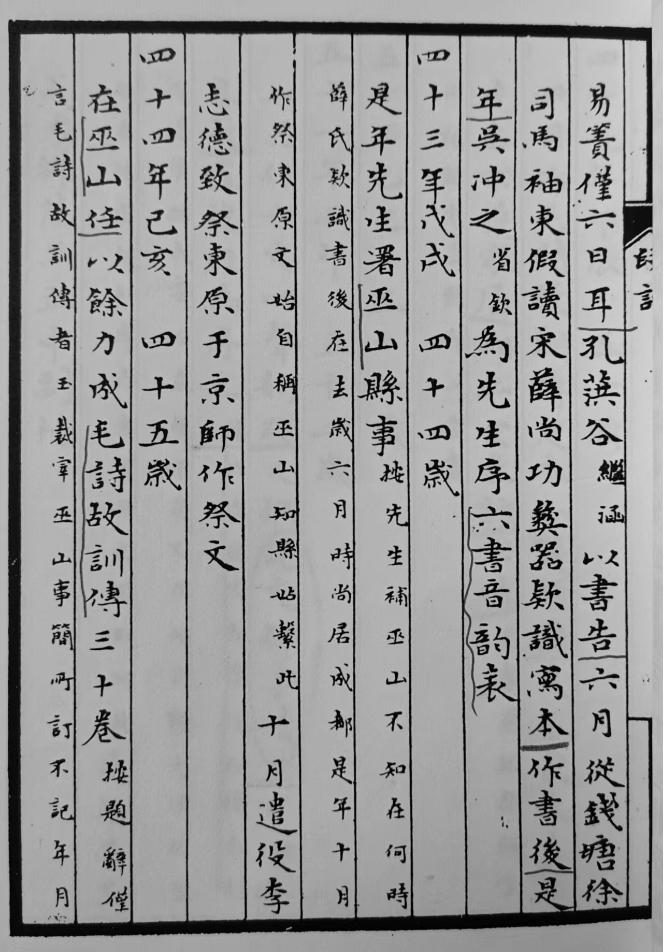 易簀僅六日耳孔葓谷繼涵以書告六月從錢塘徐
司馬袖東假讀宋薛尚功彝器欵識寫本作書後是
年吳沖之省欽為先生序六書音韵表
四十三年戊戌 四十四歲
是年先生署巫山縣事按先生補巫山不知在何時
薛氏欵識書後在去歲六月時尚居成都是年十月
作祭東原文始自稱巫山知縣姑繫此十月遣役李
志德致祭東原于京師作祭文
四十四年己亥 四十五歲
在巫山任以餘力成毛詩故訓傳三十卷按題辭僅
言毛詩故訓傳者玉裁宰巫山事簡所訂不記年月